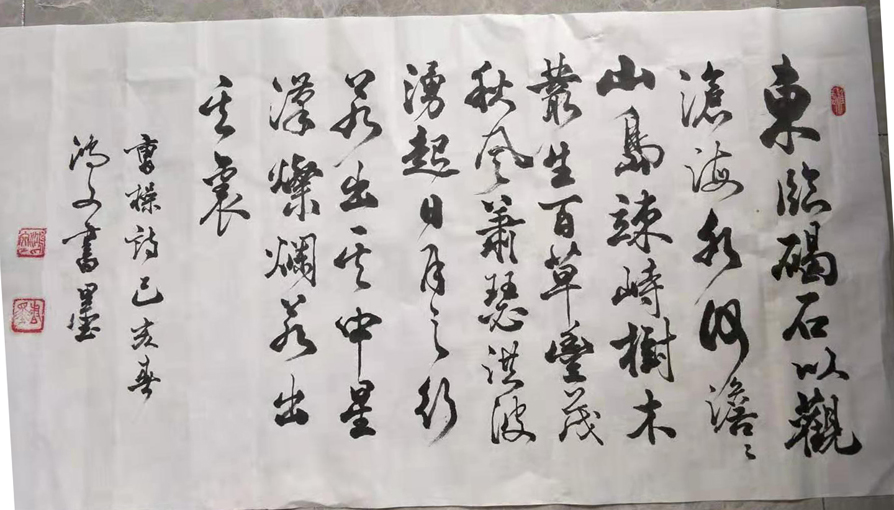 東臨碣石以觀
滄海水何澹〻
山島竦峙樹木
叢生百草豐茂
秋風蕭瑟洪波
湧起日月之行
若出其中星
漢燦爛若出
其裏
曹操詩己亥春
鴻文書墨